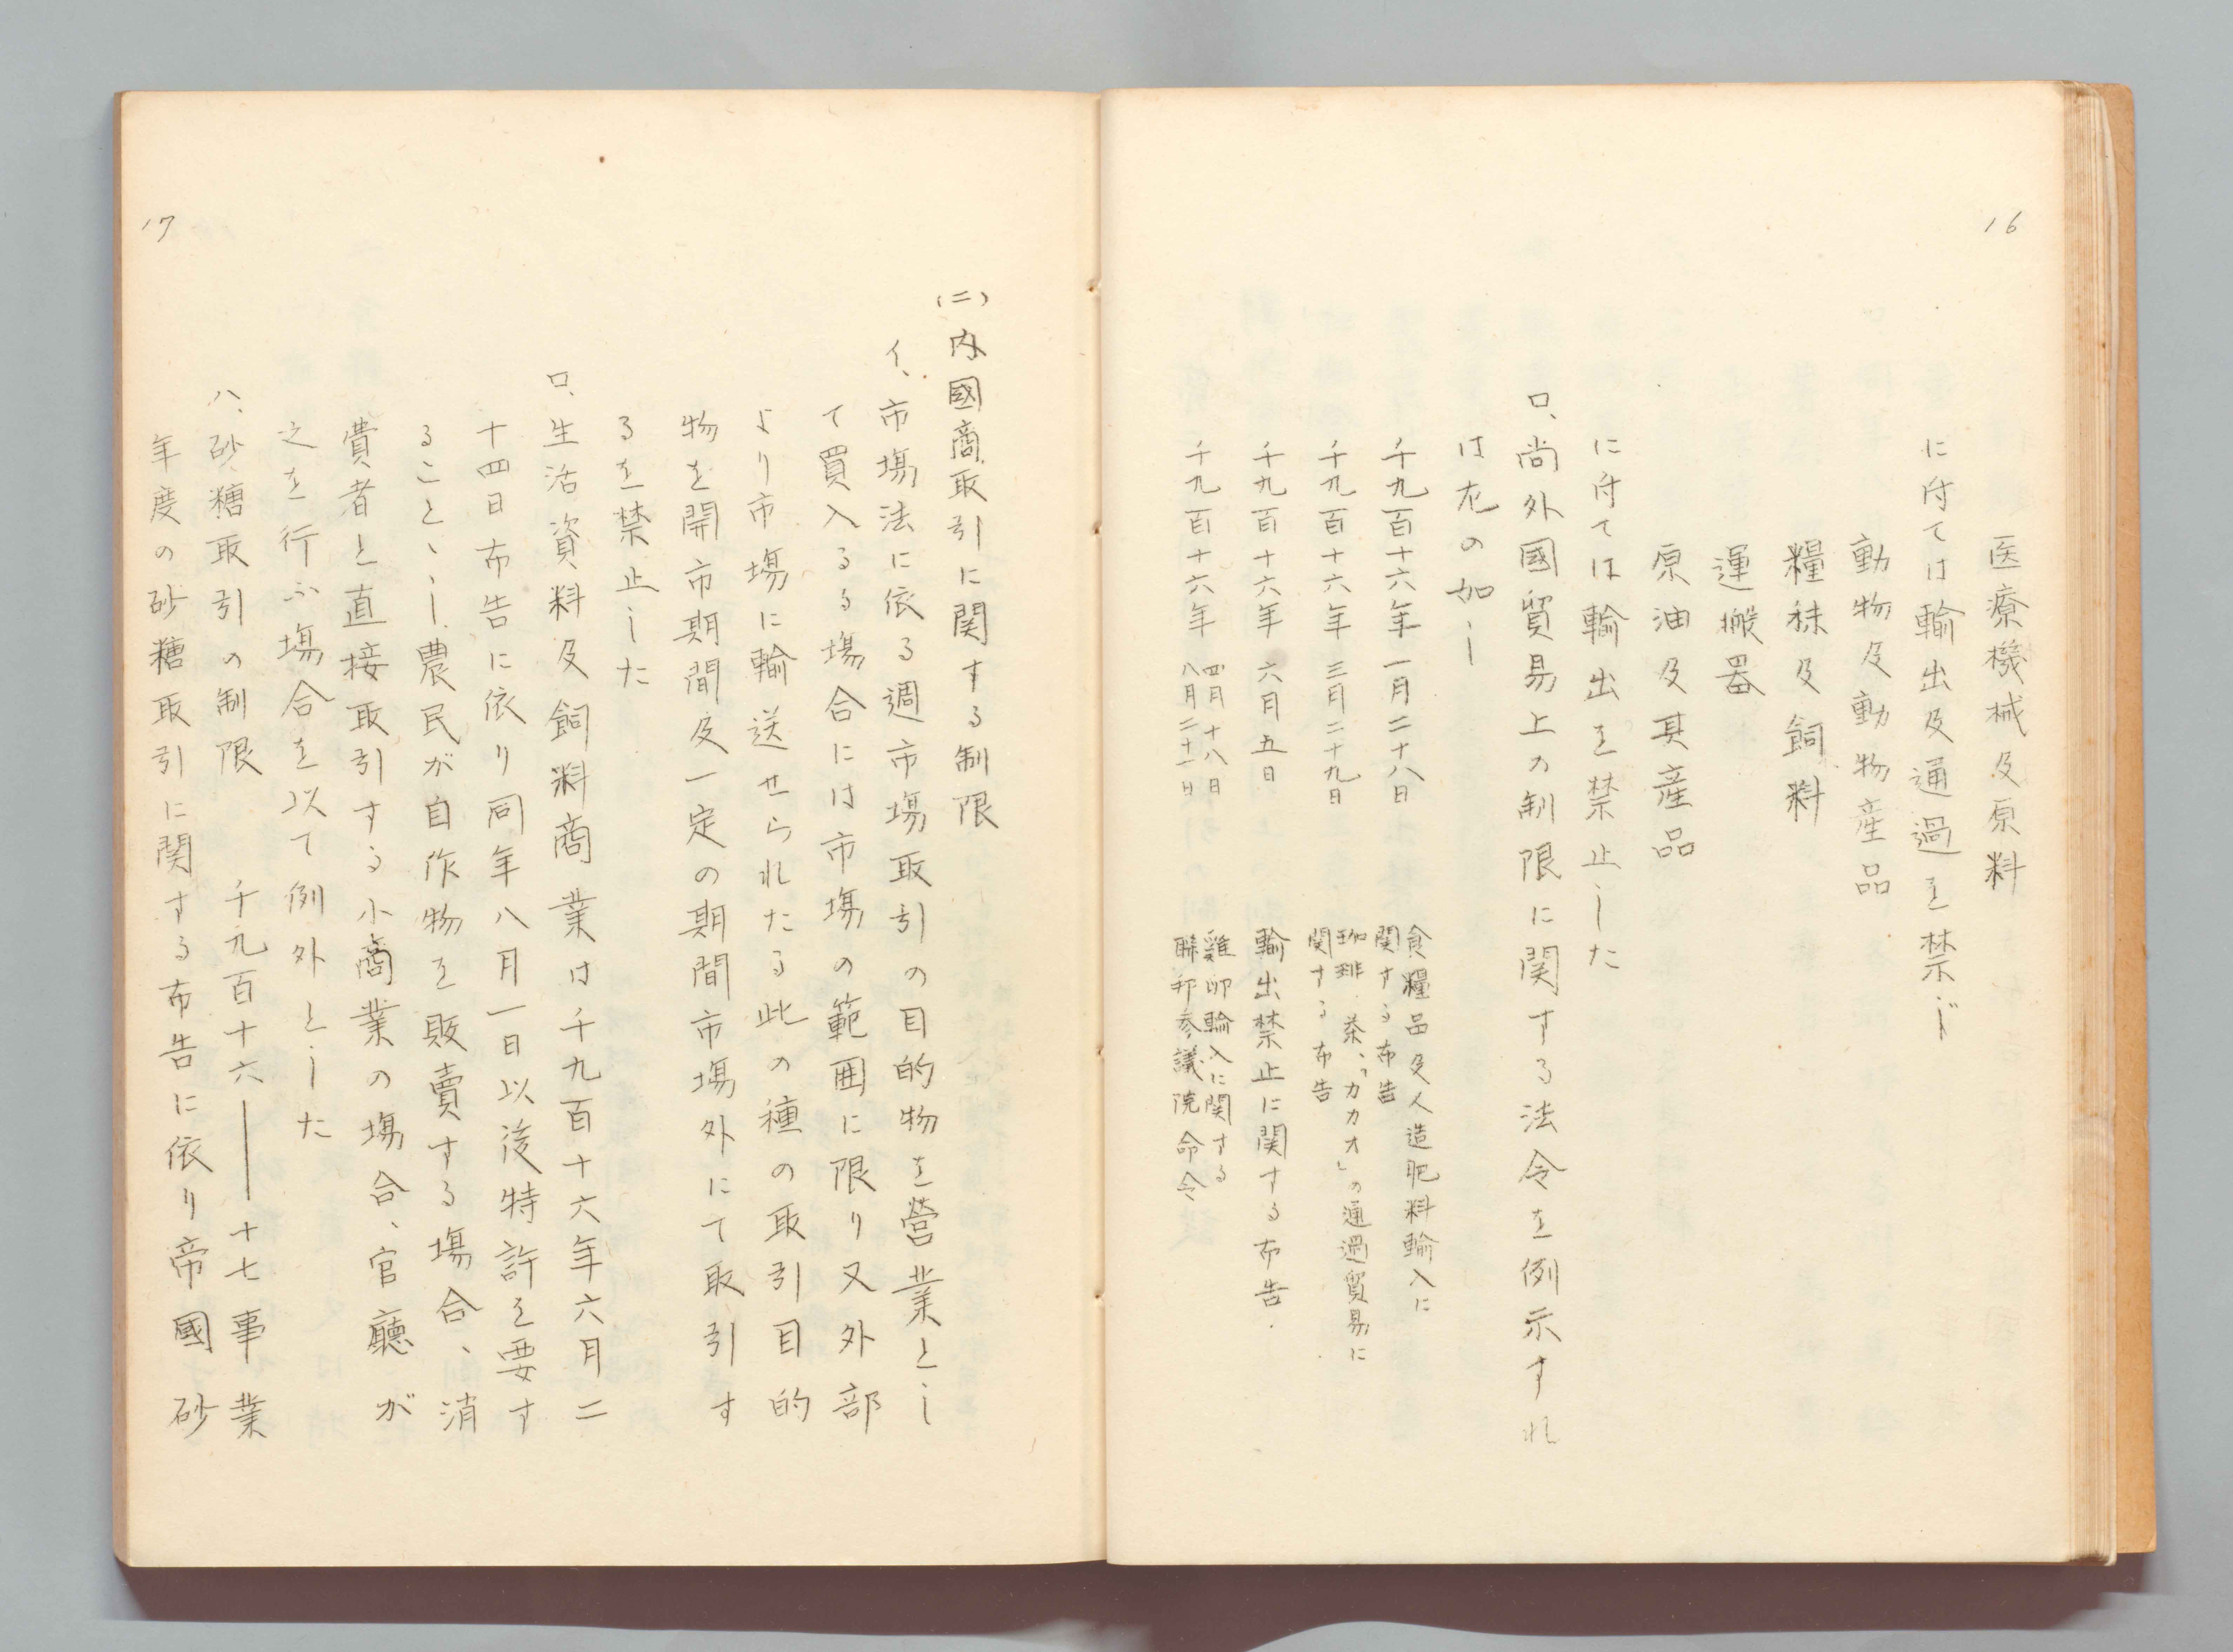 16
医療機械及原料
に付ては輸出及通過を禁じ
動物及動物産品
糧秣及飼料
運搬器
原油及其産品
に付ては輸出を禁止した
ロ、尚外國貿易上の制限に関する法令を例示すれ
は左の如し
千九百十六年一月二十八日 食糧品及人造肥料輸入に
関する布告
千九百十六年三月二十九日 珈琲、茶、「カカオ」の通過貿易に
関する布告
千九百十六年六月五日 輸出禁止に関する布告
千九百十六年 四月十八日 雞卵輸入に関する
八月二十一日 聯邦参議院命令
17
(二)内國商取引に関する制限
イ、市場法に依る週市場取引の目的物を營業とし
て買入るる場合には市場の範囲に限り又外部
より市場に輸送せられたる此の種の取引目的
物を開市期間及一定の期間市場外にて取引す
るを禁止した
ロ、生活資料及飼料商業は千九百十六年六月二
十四日布告に依り同年八月一日以後特許を要す
ることゝし農民が自作物を販賣する場合、消
費者と直接取引する小商業の場合、官廳が
之を行ふ場合を以て例外とした
ハ、砂糖取引の制限 千九百十六──十七事業
年度の砂糖取引に関する布告に依り帝國砂